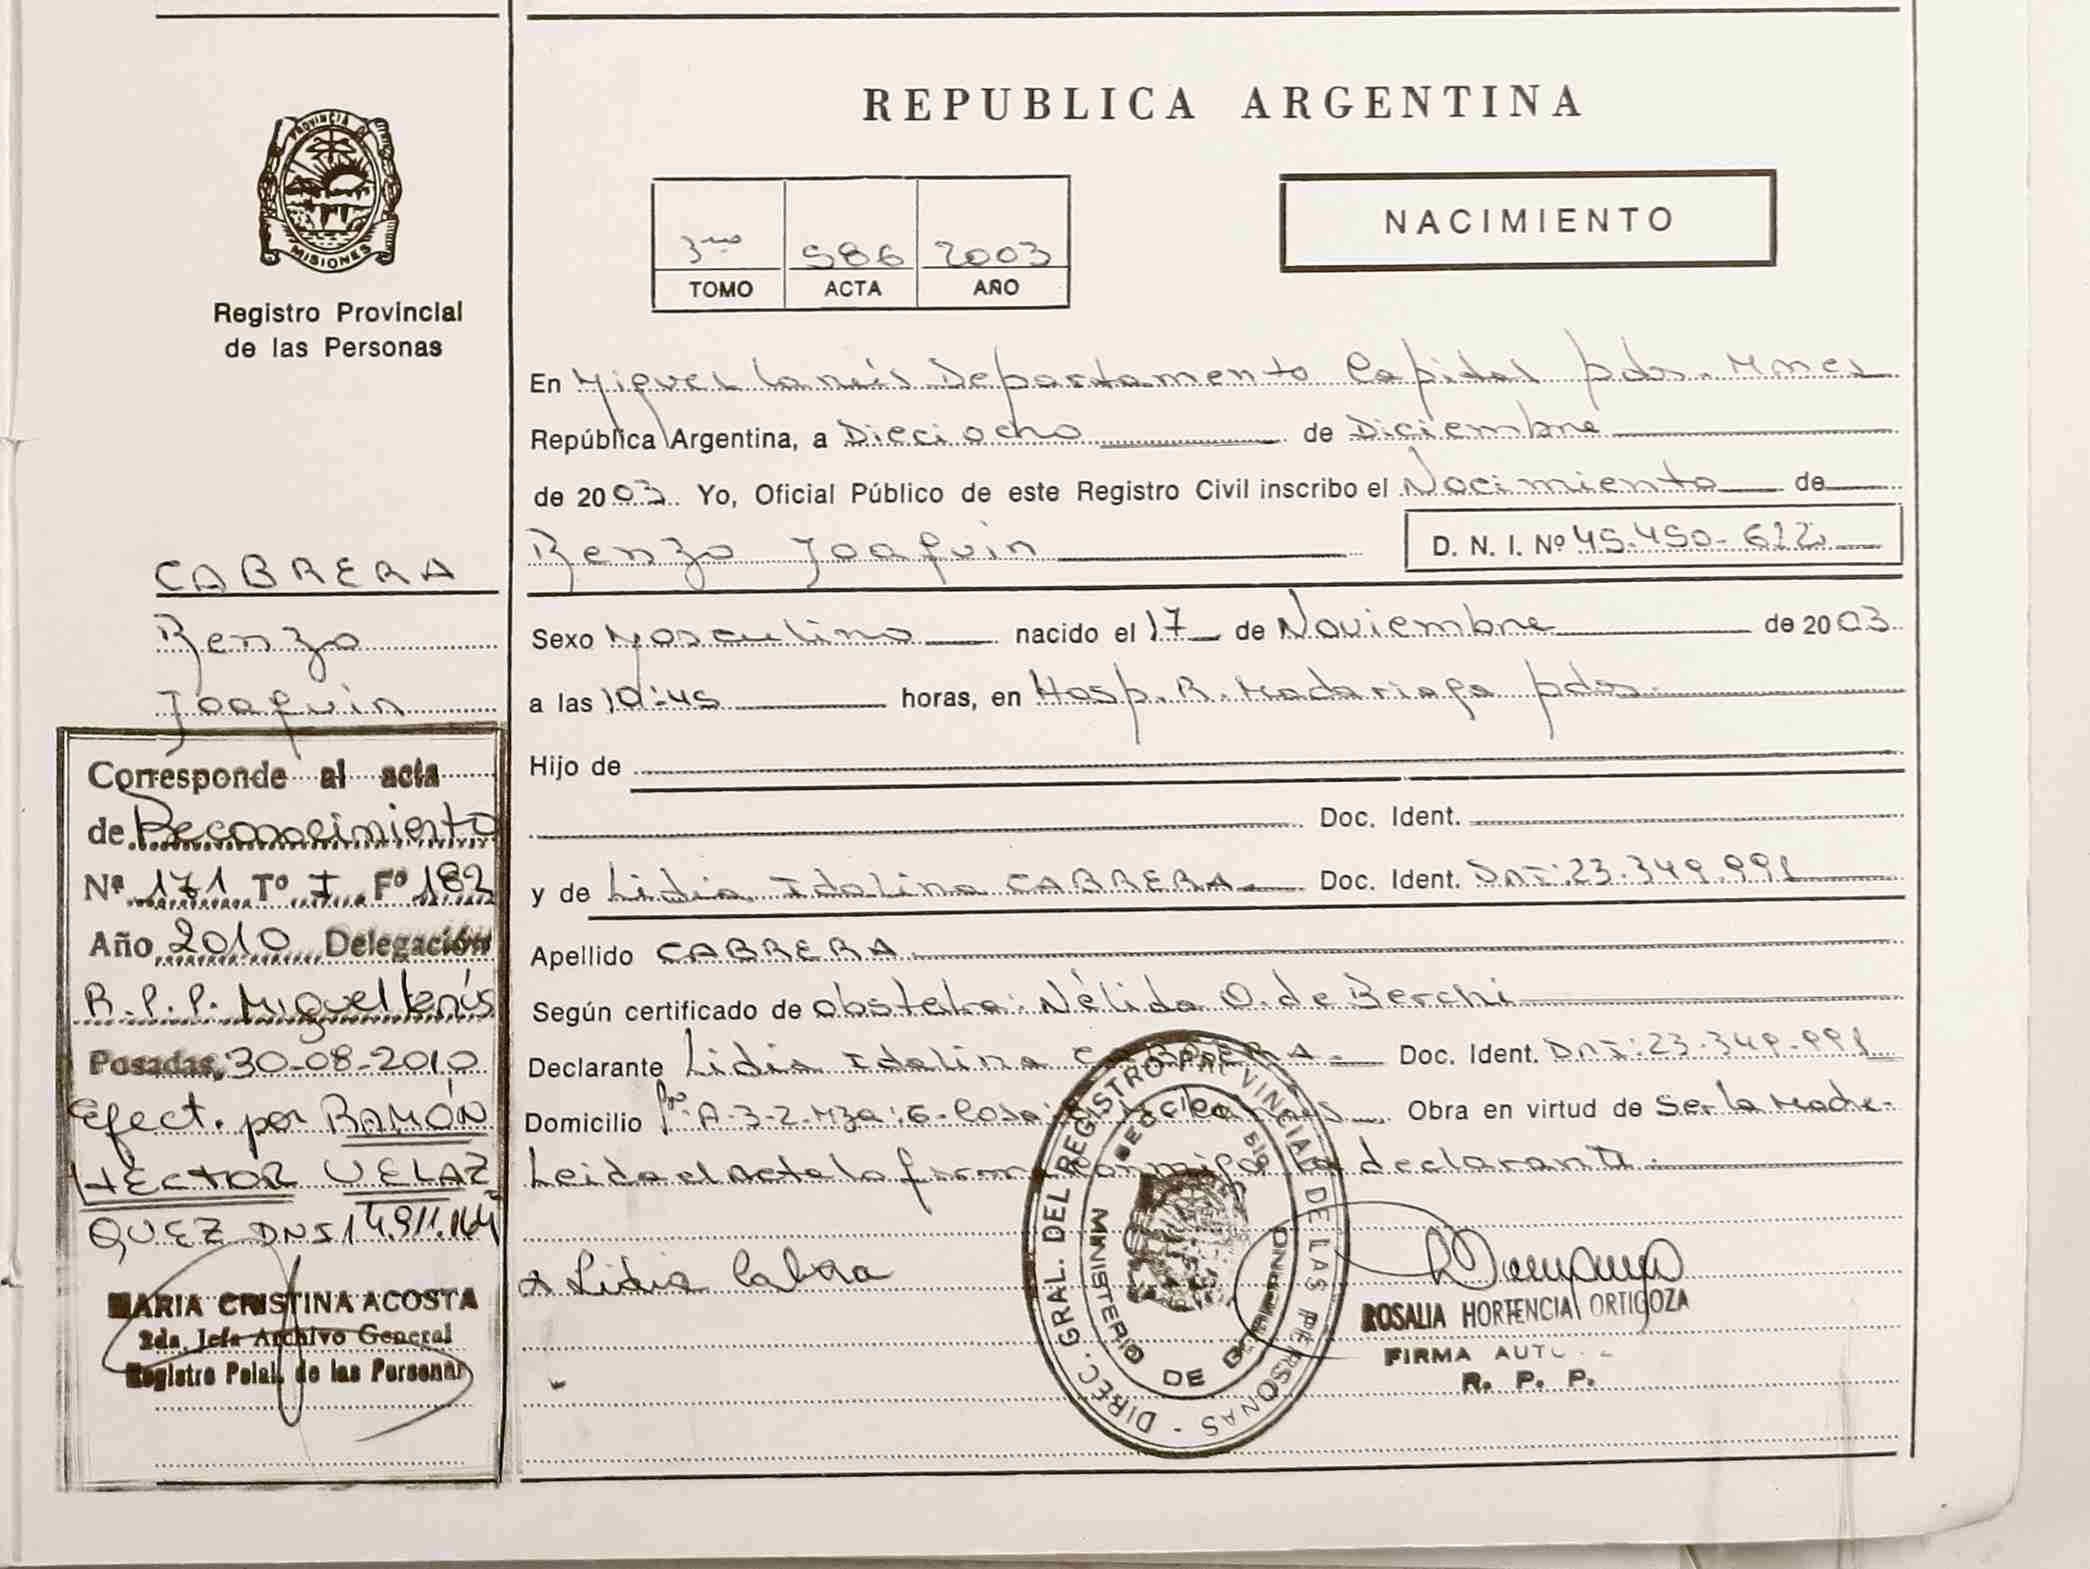 PROVINCIA DE
MISIONES
Registro Provincial
de las Personas
CABRERA
Renzo
Joaquin
Corresponde al acta
de Reconocimiento
Nº 171 Tº I Fº 182
Año 2010 Delegación
R.P.P. Miguel Lanús
Posadas, 30-08-2010
Efect. por RAMÓN
HÉCTOR VELAZ
QUEZ DNI 14.911.164
MARIA CRISTINA ACOSTA
2da. Jefa Archivo General
Registro Pcial. de las Personas
REPUBLICA ARGENTINA
3ro 586 2003
TOMO ACTA AÑO
NACIMIENTO
En Miguel Lanús Departamento Capital pdas. Mnes
República Argentina, a Dieciocho de Diciembre
de 2003. Yo, Oficial Público de este Registro Civil inscribo el Nacimiento de
Renzo Joaquin D. N. I. Nº 45.450-622
Sexo Masculino nacido el 17 de Noviembre de 2003
a las 10:45 horas, en Hosp. R. Madariaga pdas.
Hijo de
Doc. Ident.
y de Lidia Idalina CABRERA Doc. Ident. DNI:23.349.991
Apellido CABRERA
Según certificado de obsteta: Nélida O. de Berchi
Declarante Lidia Idalina CABRERA Doc. Ident. DNI:23.349.991
Domicilio A-3-2-Mza:6- Obra en virtud de Ser la Madre.
Leida el acta la firma conmigo la declarante.
Lidia Cabrera
DIREC. GRAL. DEL REGISTRO PROVINCIAL DE LAS PERSONAS
MINISTERIO DE GOBIERNO
ROSALIA HORTENCIA ORTIGOZA
FIRMA
R. P. P.